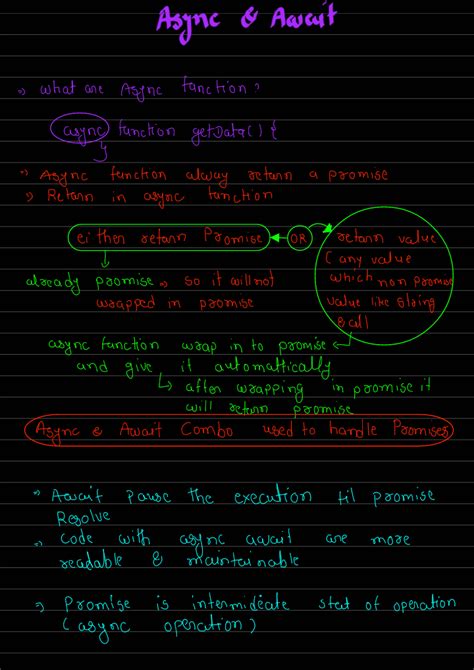 Async & Await
what are Async function?
async function getData() {
}
Async function alway retarn a promise
Retarn in async function
either retarn Promise OR retarn value
( any value
which non promise
value like string
& all
already promise so it will not
wrapped in promise
async function wrap in to promise
and give it automattically
after wrapping in promise it
will retarn promise
Async & Await Combo used to handle Promises
Await Pause the execution til promise
Resolve
Code with async await are more
readable & maintainable
Promise is intermideate stat of operation
( async operation )